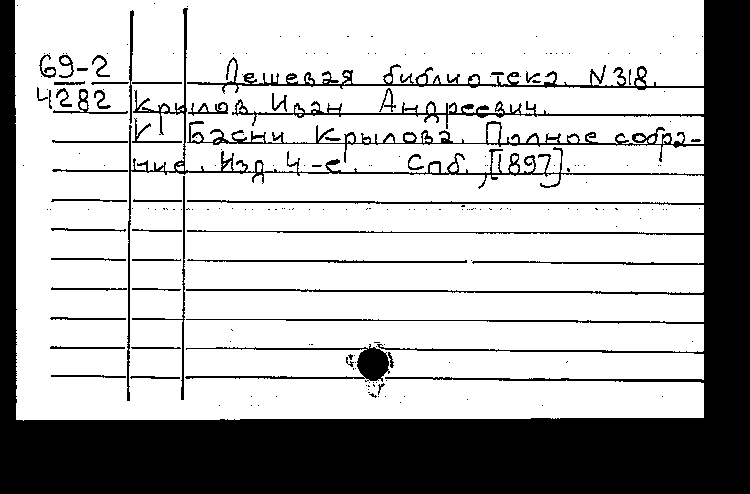 69-2 Дешевая библиотека. N 318.
4282 Крылов, Иван Андреевич.
К Басни Крылова. Полное собра-
ние. Изд. 4-е. Спб., [1897].